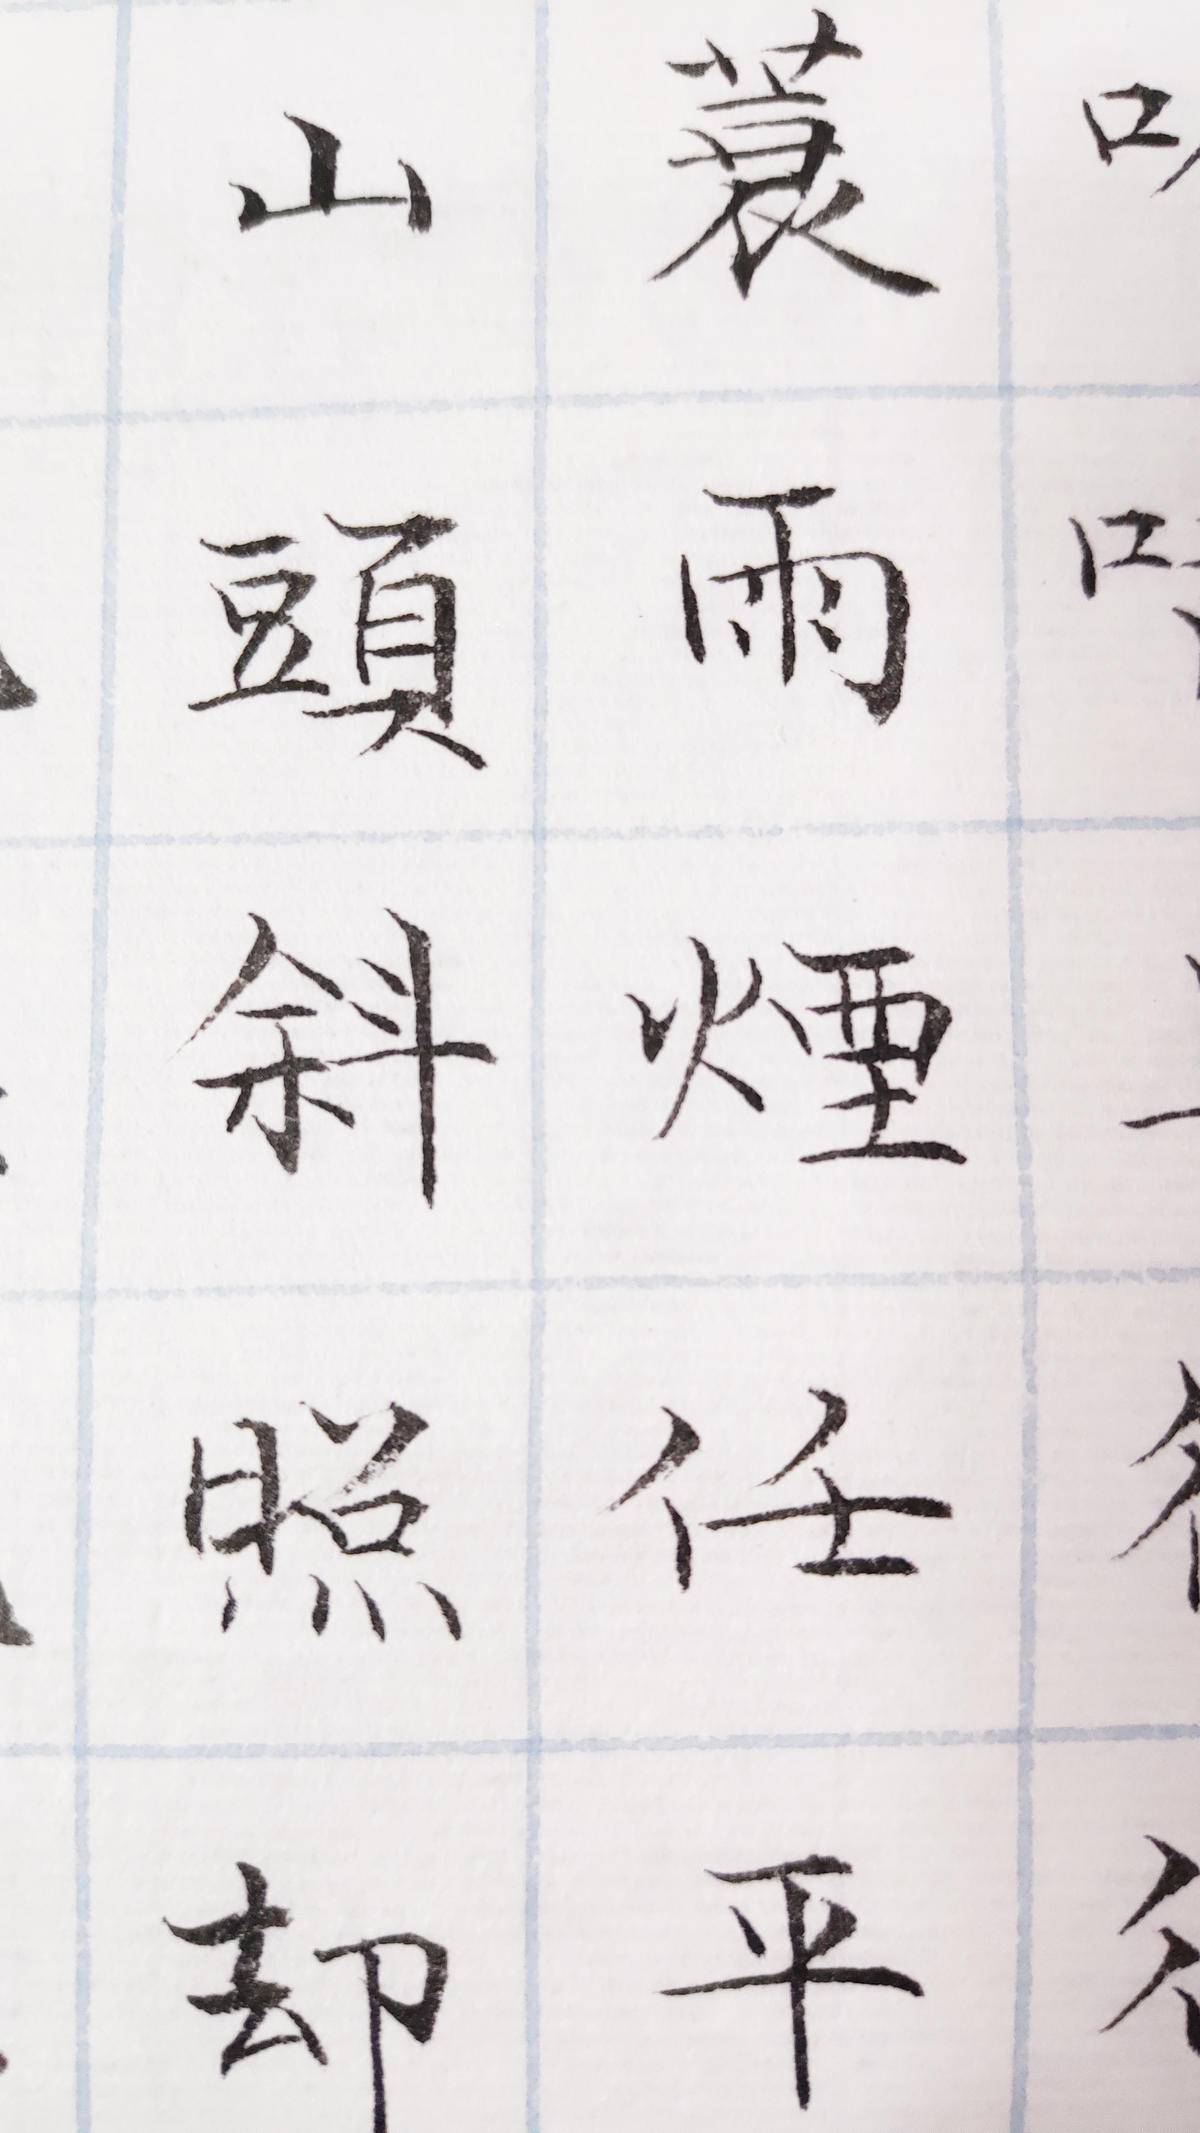 蓑雨煙任平
山頭斜照却